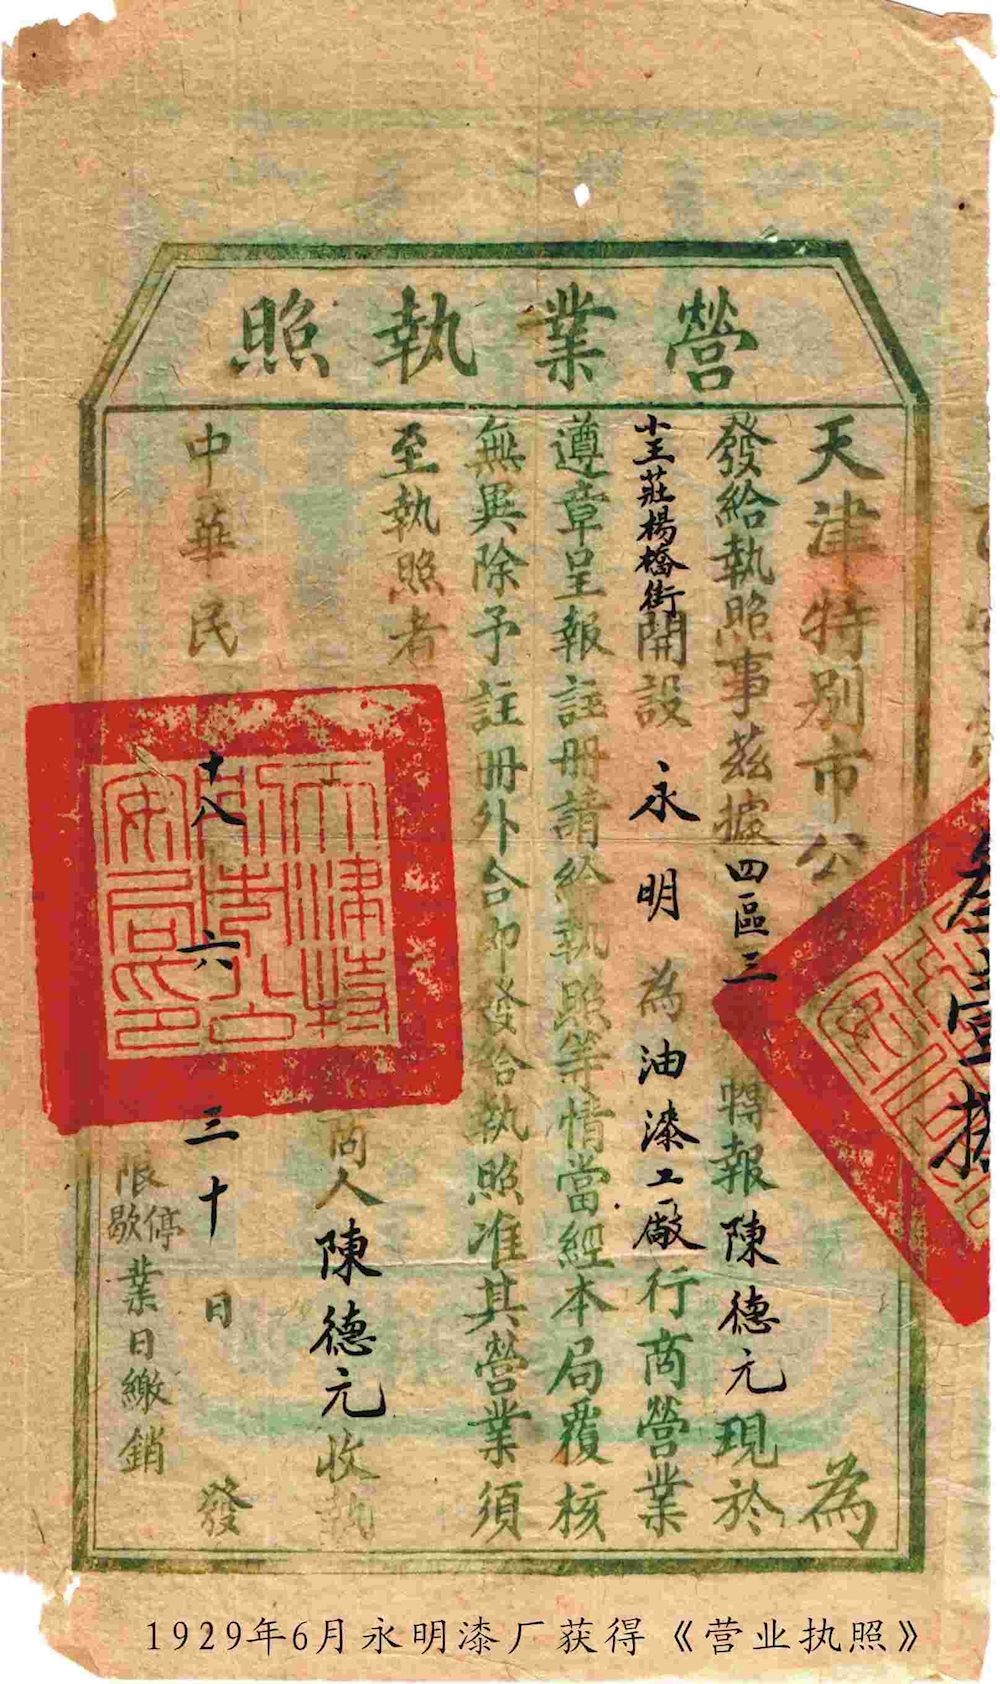 營業執照
天津特別市公 為
發給執照事茲據四區三 轉報陳德元現於
小王莊楊橋街開設永明為油漆工廠行商營業
遵章呈報註冊請給執照等情當經本局覆核
無異除予註冊外合即發給執照准其營業須
至執照者
商人陳德元收執
中華民 十八 六 三十日 發
限停歇業日繳銷
天津特別市公安局印
叁壹
1929年6月永明漆厂获得《营业执照》